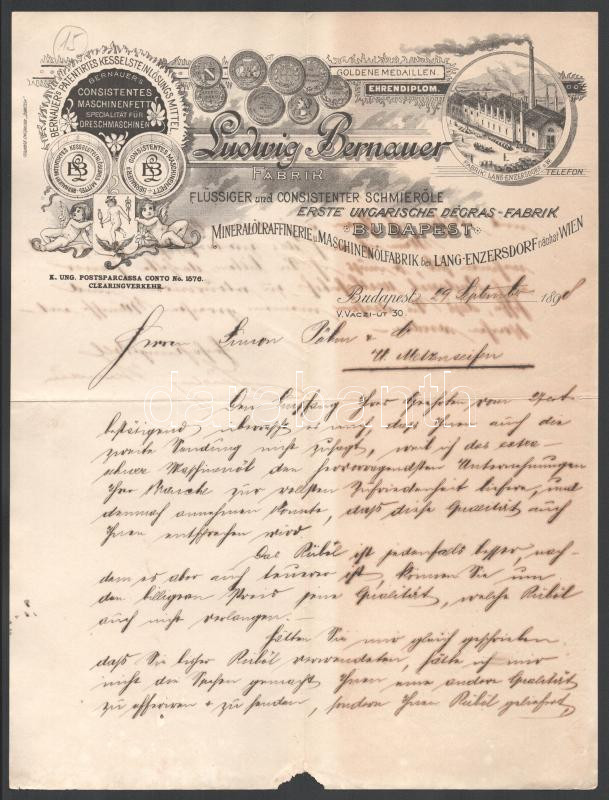 15
BERNAUER'S PATENTIRTES KESSELSTEINLÖSUNGS MITTEL.
BERNAUER'S
CONSISTENTES
MASCHINENFETT
SPECIALITÄT FÜR
DRESCHMASCHINEN
GOLDENE MEDAILLEN.
EHRENDIPLOM.
Ludwig Bernauer
FABRIK
FLÜSSIGER und CONSISTENTER SCHMIERÖLE
ERSTE UNGARISCHE DÉGRAS-FABRIK
BUDAPEST
MINERALÖLRAFFINERIE u. MASCHINENÖLFABRIK bei LANG-ENZERSDORF nächst WIEN
FABRIK: LANG-ENZERSDORF
TELEFON
K. UNG. POSTSPARCASSA CONTO No. 1576.
CLEARINGVERKEHR.
Budapest 29 September 1898
V. VÁCZI-ÚT 30.
Herren Simon Böhm &
U. Metzenseifen
Den Empfang Ihres Geehrten vom
bestätigend überrascht es mich, daß Ihnen auch die
zweite Sendung nicht zusagt, weil ich das
Maschinenöl den hervorragendsten Unternehmungen
Ihrer Branche zur vollsten Zufriedenheit liefere, und
demnach annehmen konnte, daß diese Qualität auch
Ihnen entsprechen wird.
Das Rüböl ist jedenfalls besser, nach-
dem es aber auch teuerer ist, können Sie um
den billigeren Preis jene Qualität, welche Rüböl
auch nicht verlangen.
Hätten Sie mir gleich geschrieben
daß Sie bisher Rüböl verwendeten, hätte ich mir
nicht die Spesen gemacht Ihnen eine andere Qualität
zu offeriren & zu senden, sondern Ihnen Rüböl geliefert,
darabanth